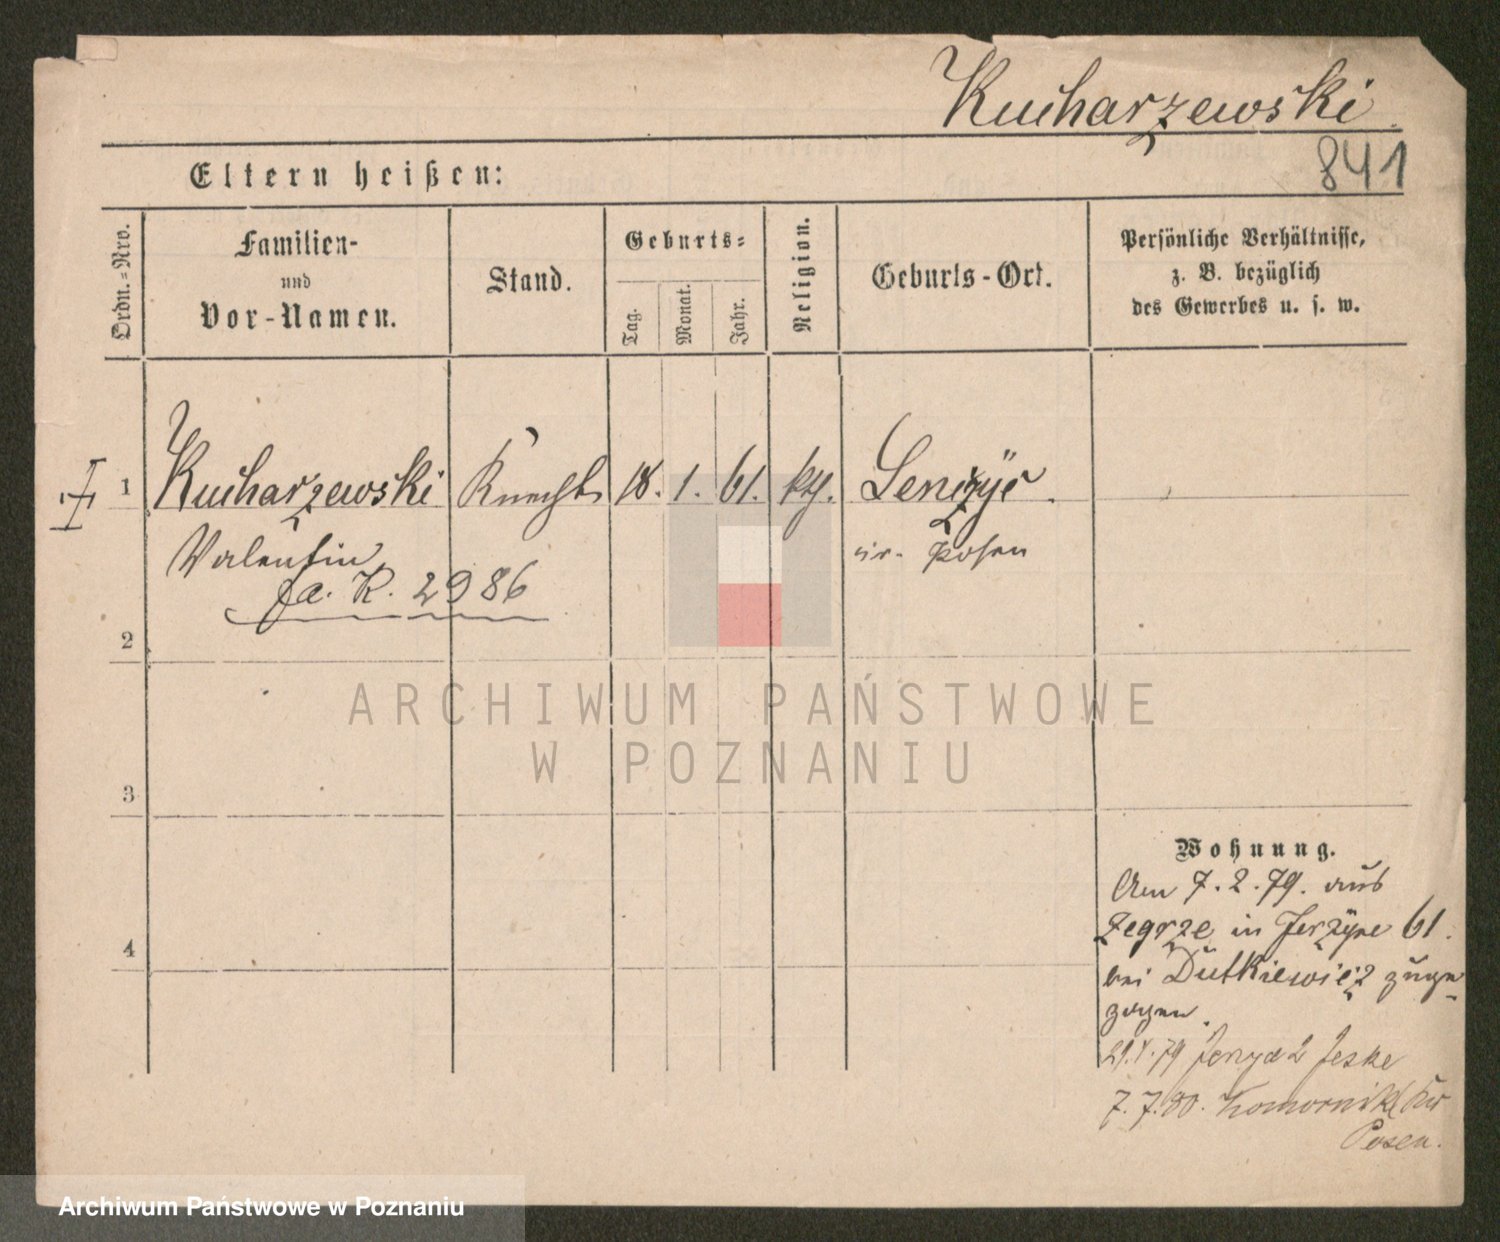 Kucharzewski
841
Eltern heißen:
Ordn.=Nro.
Familien-
und
Vor-Namen.
Stand.
Geburts=
Tag.
Monat.
Jahr.
Religion.
Geburts-Ort.
Persönliche Verhältnisse,
z. B. bezüglich
des Gewerbes u. s. w.
1 Kucharzewski Knecht 18. 1. 61. kth.
Valentin Posen
Fa. K. 2986
2
ARCHIWUM PAŃSTWOWE
W POZNANIU
3
Wohnung.
Am 7. 2. 79. aus
Zegrze in 61.
4
bei Dutkiewicz zuge-
zogen.
79 2 Jeske
7. 7. 80. Komornik
Posen.
Archiwum Państwowe w Poznaniu